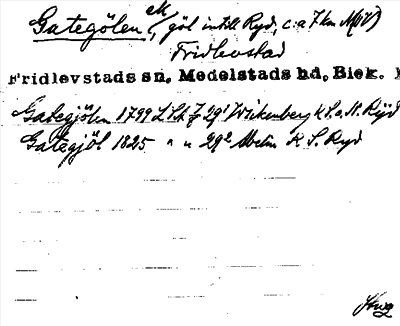 Gategölen, ek, göl intill Ryd, c:a 7 km N(V)
Fridlevstad
Fridlevstads sn, Medelstads hd, Blek.
Gategjölen 1799 LSA J 29¹ Wickenberg k S. o. N. Ryd
Gategjöl 1825 " " 29² Malm K S. Ryd